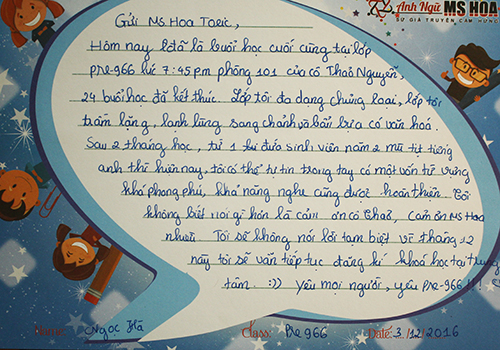 Anh Ngữ MS HOA
SỨ GIẢ TRUYỀN CẢM HỨNG
Gửi Ms Hoa Toeic,
Hôm nay đã là buổi học cuối cùng tại lớp
pre-966 lúc 7:45 pm phòng 101 của cô Thảo Nguyễn,
24 buổi học đã kết thúc. Lớp tôi đa dạng chủng loại, lớp tôi
trầm lắng, lạnh lùng sang chảnh và bẩn bựa có văn hoá.
Sau 2 tháng học, từ 1 đứa sinh viên năm 2 mù tịt tiếng
anh thì hiện nay, tôi có thể tự tin trong tay có một vốn từ vựng
khá phong phú, khả năng nghe cũng được hoàn thiện. Tôi
không biết nói gì hơn là cảm ơn cô Thảo, cảm ơn Ms Hoa
nhiều. Tôi sẽ không nói lời tạm biệt vì tháng 12
này tôi sẽ vẫn tiếp tục đăng kí khoá học tại trung
tâm. :)) Yêu mọi người, yêu pre-966 !!!
Name: Ngọc Hà Class: Pre 966 Date: 3/12/2016